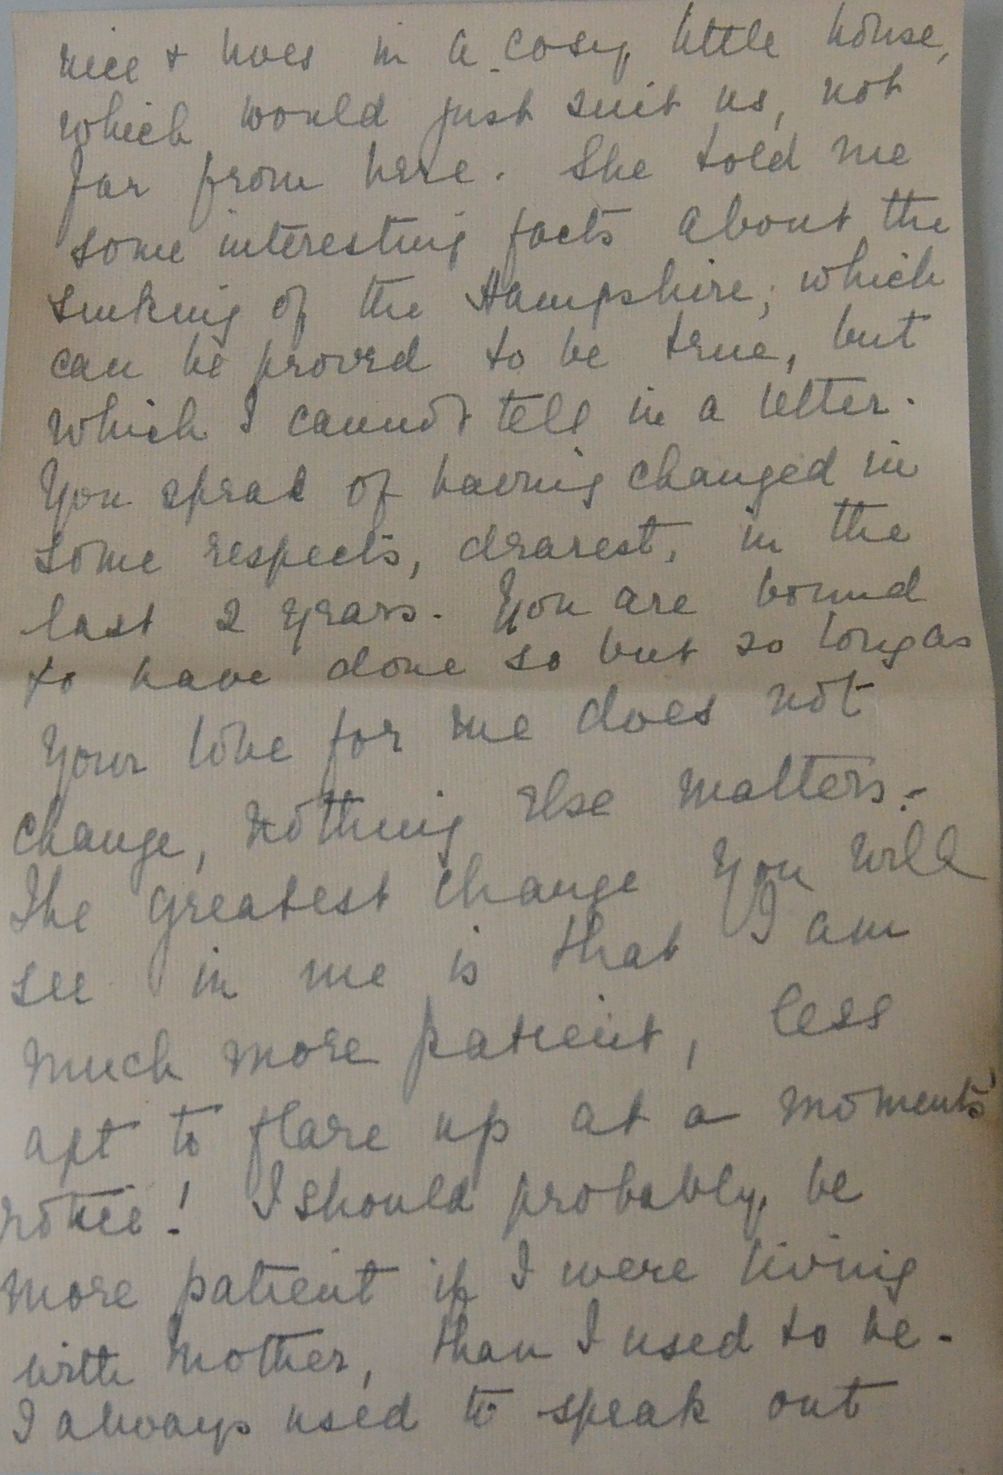 nice & lives in a cosy little house,
which would just suit us, not
far from here. She told me
some interesting facts about the
sinking of the Hampshire, which
can be proved to be true, but
which I cannot tell in a letter.
You speak of having changed in
some respects, dearest, in the
last 2 years. You are bound
to have done so but so long as
your love for me does not
change, nothing else matters.-
The greatest change you will
see in me is that I am
much more patient, less
apt to flare up at a moments'
notice! I should probably be
more patient if I were living
with Mother, than I used to be-
I always used to speak out